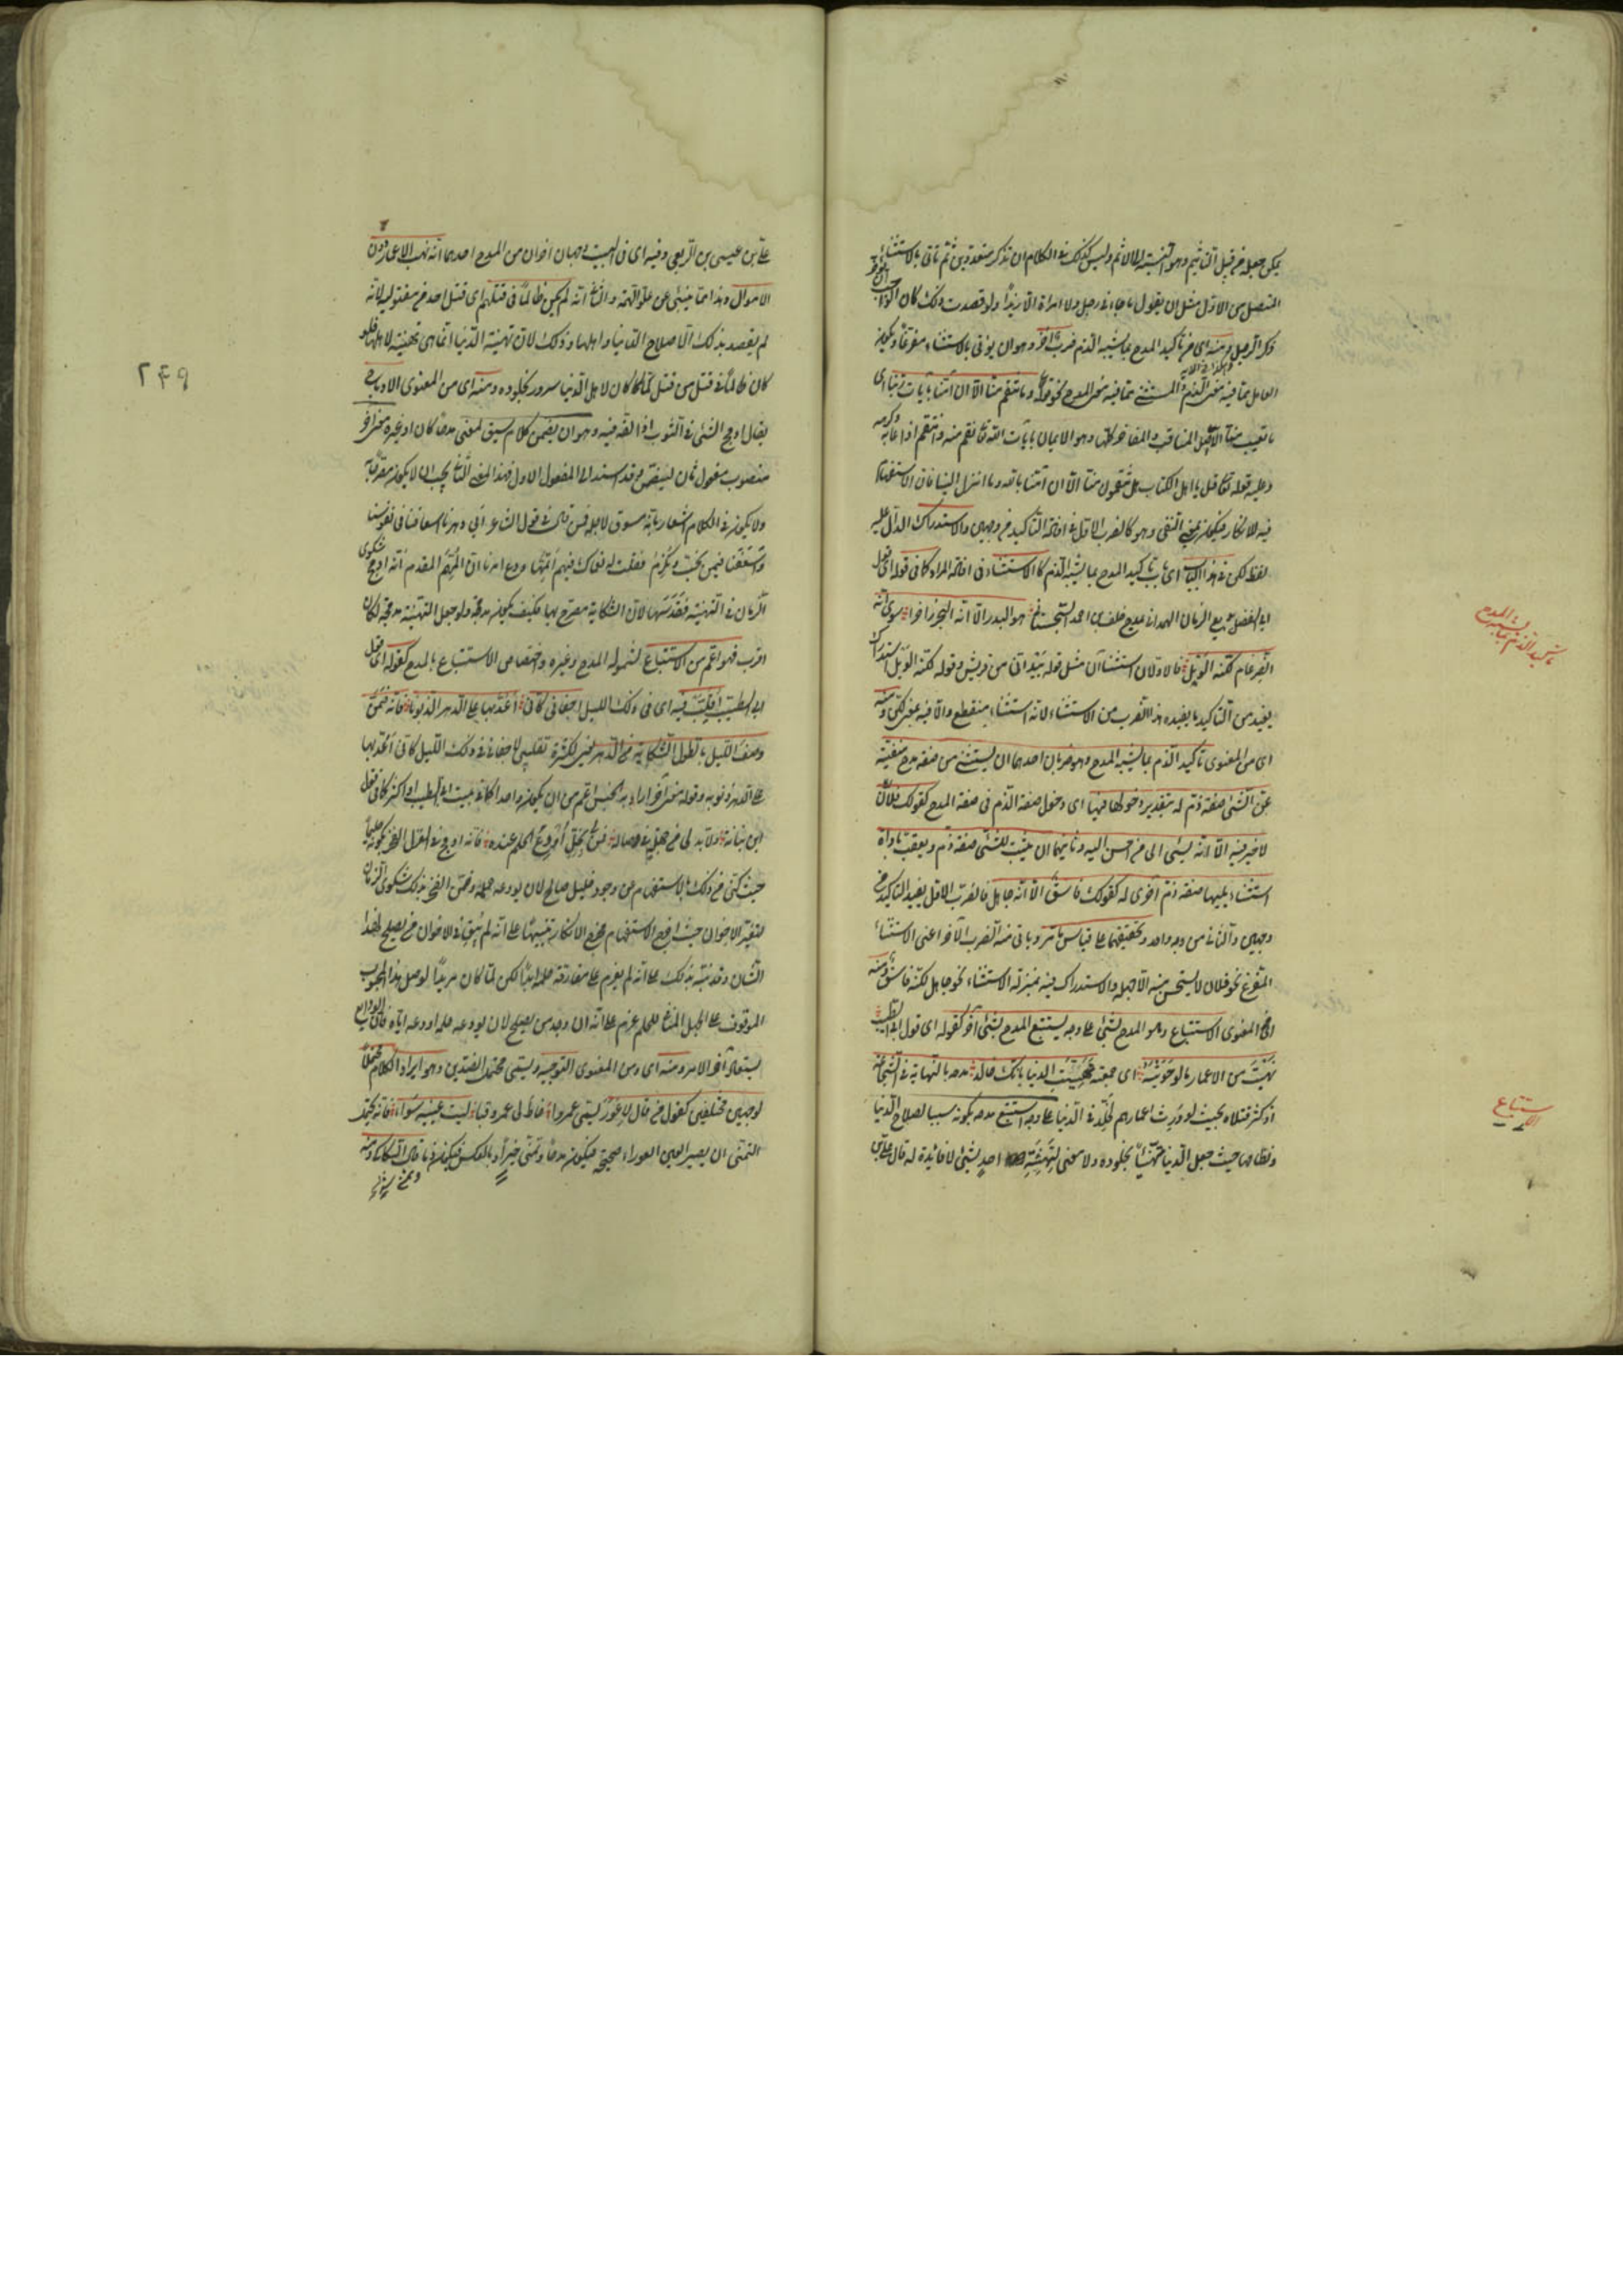 يمكن جعله من قبيل التأثيم وهو النسبة الى الاثم وليس كذلك في الكلام ان تذكر متعددين ثم تأتي بالاستثناء
المتصل من الاول مثل ان يقول ما جاءني رجل ولا امرأة الا زيدا ولو قصدت ذلك كان الواجب
ذكر الرجل ومنه اي من تأكيد المدح بما يشبه الذم ضرب آخر وهو ان يؤتى بالاستثناء مفرغا ويكون
العامل مما فيه معنى الذم والمستثنى مما فيه معنى المدح نحو قوله تعالى وما تنقم منا الا ان آمنا بآيات ربنا اي
ما تعيب منا الا اصل المناقب والمفاخر كلها وهو الايمان بآيات الله تعالى نقم منه وانتقم اذا عابه وكرهه
وعليه قوله تعالى قل يا اهل الكتاب هل تنقمون منا الا ان آمنا بالله وما انزل الينا فان الاستفهام
فيه للانكار فيكون بمعنى النفي وهو كالضرب الاول في افادة التأكيد من وجهين والاستدراك الدال عليه
لفظ لكن في هذا الباب اي باب تأكيد المدح بما يشبه الذم كالاستثناء في افادة المراد كما في قوله اي قول
ابي الفضل بديع الزمان الهمداني يمدح خلف بن احمد السجستاني هو البدر الا انه البحر زاخرا سوى انه
الضرغام لكنه الوبل فالاولان استثناآن مثل قوله بيد اني من قريش وقوله لكنه الوبل استدراك
يفيد من التأكيد ما يفيده هذا الضرب من الاستثناء لانه استثناء منقطع والا فيه بمعنى لكن ومنه
اي من المعنوي تأكيد الذم بما يشبه المدح وهو ضربان احدهما ان يستثنى من صفة مدح منفية
عن الشئ صفة ذم له بتقدير دخولها فيها اي دخول صفة الذم في صفة المدح كقولك فلان
لا خير فيه الا انه يسئ الى من احسن اليه وثانيهما ان يثبت للشئ صفة ذم ويعقب باداة
استثناء يليها صفة ذم اخرى له كقولك فاسق الا انه جاهل فالضرب الاول يفيد التأكيد من
وجهين والثاني من وجه واحد وتحقيقهما على قياس ما مر ويأتي منه الضرب الآخر اعني الاستثناء
المفرغ نحو فلان لا يستحسن منه الا جهله والاستدراك فيه بمنزلة الاستثناء نحو جاهل لكنه فاسق ومنه
اي من المعنوي الاستتباع وهو المدح بشئ على وجه يستتبع المدح بشئ آخر كقوله اي قول ابي الطيب
نهبت من الاعمار ما لو حويته اي جمعته لهنئت الدنيا بانك خالد مدحه بالنهاية في الشجاعة
اذ كثر قتلاه بحيث لو ورث اعمارهم لخلد في الدنيا على وجه استتبع مدحه بكونه سببا لصلاح الدنيا
ونظامها حيث جعل الدنيا مهناة بخلوده ولا معنى لتهنئة احد بشئ لا فائدة له قال علي بن
تأكيد الذم بما يشبه المدح
الاستتباع
علي بن عيسى بن الربعي وفيه اي في البيت وجهان آخران من المدح احدهما انه نهب الاعمار دون
الاموال وهذا مما ينبئ عن علو الهمة والثاني انه لم يكن ظالما في قتلهم اي قتل احد من مقتوليه لانه
لم يقصد بذلك الا صلاح الدنيا واهلها وذلك لان تهنية الدنيا انما هي تهنية لاهلها فلو
كان ظالما في قتل من قتل لما كان لاهل الدنيا سرور بخلوده ومنه اي من المعنوي الادماج
يقال ادمج الشئ في الثوب اذا لفه فيه وهو ان يضمن كلام سيق لمعنى مدحا كان او غيره معنى آخر
منصوب مفعول ثان ليضمن وقد اسند الى المفعول الاول فهذا المعنى الثاني يجب ان لا يكون مصرحا به
ولا يكون في الكلام اشعار بانه مسوق لاجله فمن قال في قول الشاعر ابى دهرنا اسعافنا في نفوسنا
واسعفنا فيمن نحب ونكرم فقلت له نعماك فيهم اتمها ودع امرنا ان المهم المقدم انه ادمج شكوى
الزمان في التهنية فقد سها لان الشكاية مصرح بها فكيف يكون مدمجة ولو جعل التهنية مدمجة لكان
اقرب فهو اعم من الاستتباع لشموله المدح وغيره واختصاص الاستتباع بالمدح كقوله اي قول
ابي الطيب اقلب فيه اي في ذلك الليل اجفاني كاني اعد بها على الدهر الذنوبا فانه ضمن
وصف الليل بالطول الشكاية من الدهر يعني لكثرة تقليبي لاجفاني في ذلك الليل كاني اعد بها
على الدهر ذنوبه وقوله معنى آخر اراد به الجنس اعم من ان يكون واحدا كما في بيت ابي الطيب او اكثر كما في قول
ابن نباتة ولا بد لي من جهلة في وصاله فمن لي بخل اودع الحلم عنده فانه ادمج في الغزل الفخر بكونه حليما
حيث كنى عن ذلك بالاستفهام عن وجود خليل صالح لان يودعه حلمه وضمن الفخر بذلك شكوى الزمان
لتغير الاخوان حيث اخرج الاستفهام مخرج الانكار تنبيها على انه لم يبق في الاخوان من يصلح لهذا
الشأن وقد نبه بذلك على انه لم يعزم على مفارقة حلمه ابدا لكن لما كان مريدا لوصل هذا المحبوب
الموقوف على الجهل المنافي للحلم عزم على انه ان وجد من يصلح لان يودعه حلمه اودعه اياه فان الودائع
تستعاد آخر الامر ومنه اي ومن المعنوي التوجيه ويسمى محتمل الضدين وهو ايراد الكلام محتملا
لوجهين مختلفين كقول من قال لاعور يسمى عمروا خاط لي عمرو قبا ليت عينيه سواء فانه يحتمل
التمني ان يصير العين العوراء صحيحة فيكون مدحا وتمني خير او بالعكس فيكون ذما قال السكاكي ومنه
٢٤٩